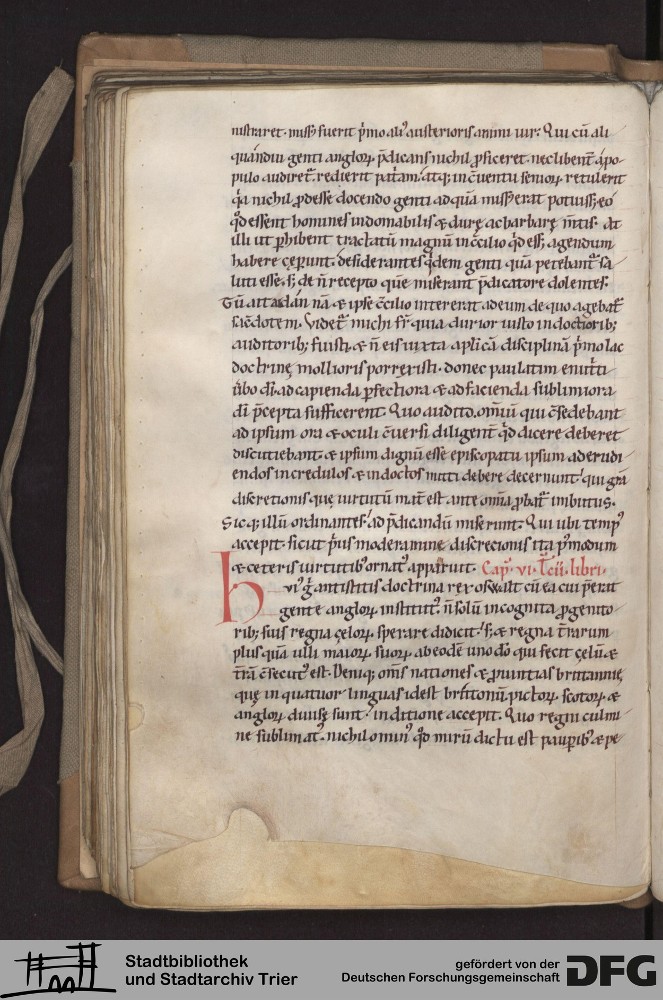 nistraret. missus fuerit p̄mo ali᷒ austerioris animi uir. Qui cū ali
quandiu genti anglorꝝ p̄dicans nichil ꝓficeret. nec libent᷑ a po
pulo audiret᷑. redierit patriam. atq; in cuentu seniorꝝ retulerit
qa nichil ꝓdesse docendo genti ad quā missus erat potuisset. eo
qd essent homines indomabilis & durę ac barbarę m̄tis. At
illi ut ꝑhibent tractatū magnū in c̄cilio qd esset agendum
habere cęperunt. desiderantes qdem genti quā petebant᷑ sa
luti esse. s; de n̄ recepto quē miserant p̄dicatore dolentes.
Tū aitaidan nā & ipse c̄cilio intererat ad eum de quo agebat᷑
sac̄dotem. Videt᷑ michi fr̄ quia durior iusto in doctiorib;
auditorib; fuisti. & n̄ eis iuxta aplicā disciplinā p̄mo lac
doctrinę mollioris porrexisti. donec paulatim enutriti
ūbo dī. ad capienda ꝑfectiora & ad facienda sublimiora
dī p̄cepta sufficerent. Quo audito. omīū qui c̄sedebant
ad ipsum ora & oculi c̄uersi diligent᷑ qd dicere deberet
discutiebant. & ipsum dignū esse episcopatu ipsum ad erudi
endos incredulos & indoctos mitti debere decernunt. qui grā
discretionis quę uirtutū mat᷑ est. ante om̄ia ꝓbat᷑ imbutus.
Sicq; illū ordinantes. ad p̄dicandū miserunt. Qui ubi temp᷒
accepit. sicut p̄us moderamine discrecionis ita p᷒modum
& ceteris uirtutib᷒ ornat᷒ apparuit. Cap. vi. t̄cii. libri.
Hui᷒ g̊ antistitis doctrina rex osualt cū ea cui p̄erit
gente anglorꝝ institut᷒. n̄ solū incognita ꝓgenito
rib; suis regna cęlorꝝ sperare didicit. s; & regna t̄rarum
plus quā ulli maiorꝝ suorꝝ ab eodē uno dō qui fecit cęlū &
t̄rā c̄secut᷒ est. Deniq; om̄s nationes & ꝓuintias brittannię
quę in quatuor linguas id est brittonū. pictorꝝ. scotorꝝ. &
anglorꝝ diuisę sunt. in ditione accepit. Quo regni culmi
ne sublimat᷒. nichilomin᷒ qd mirū dictu est pauꝑib᷒ & pe
Stadtbibliothek
und Stadtarchiv Trier
gefördert von der
Deutschen Forschungsgemeinschaft
DFG